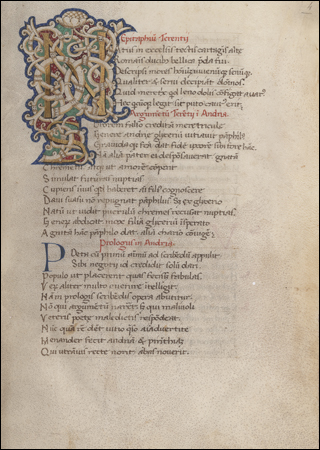 Epitaphiũ Terentii
Natus in excelsis tectis cartagis alte
Romanis ducib᷒ bellica p̃da fui.
Descripsi mores hoĩuʒ iuvenũqʒ senũqʒ
Qualiter & servi decipiãt dominos.
Quid meretrix qd leno dolis cõfingat avar᷒
Hec quicũqʒ legit sic puto caut᷒ erit.
Argumẽtũ Terẽtij ĩ Andria.
Sororem falso creditã meretricule
Genere andrie glycerii vitiavit pãphil᷒
Gravidaqʒ fca dat fidẽ uxorẽ sibi fore hãc
Nã aliã pater ei despõsaverat gnatã
Chremetis atqʒ ut amorẽ cõperit
Simulat futuras nuptias
Cupiens suus qd haberet aĩ fili᷒ cognoscere
Davi suasu nõ repugnat pãphilus. Sʒ ex glycerio
Natũ ut vidit puerulũ chremes recusat nuptias.
Generũ abdicat mox filiã glyceriũ ĩsperato
Agnitã hãc pãphilo dat aliã charino cõiugẽ.
Prologus in Andriã.
Poeta cũ primũ animũ ad scribẽdũ appulit
Sibi negotij id credidit solũ dari.
Populo ut placerent quas fecisset fabulas.
Verũ aliter multo evenire ĩtelligit.
Nam prologis scribẽdis opera abutitur.
Nõ qui argumẽtũ narret: sʒ qui malivoli
Veteris poete maledictis respõdeat.
Nũc quã rẽ dẽt vitio qso aĩadvertite
Menander fecit andriã & pirĩthiã
Qui utrãvis recte norit abas noverit.